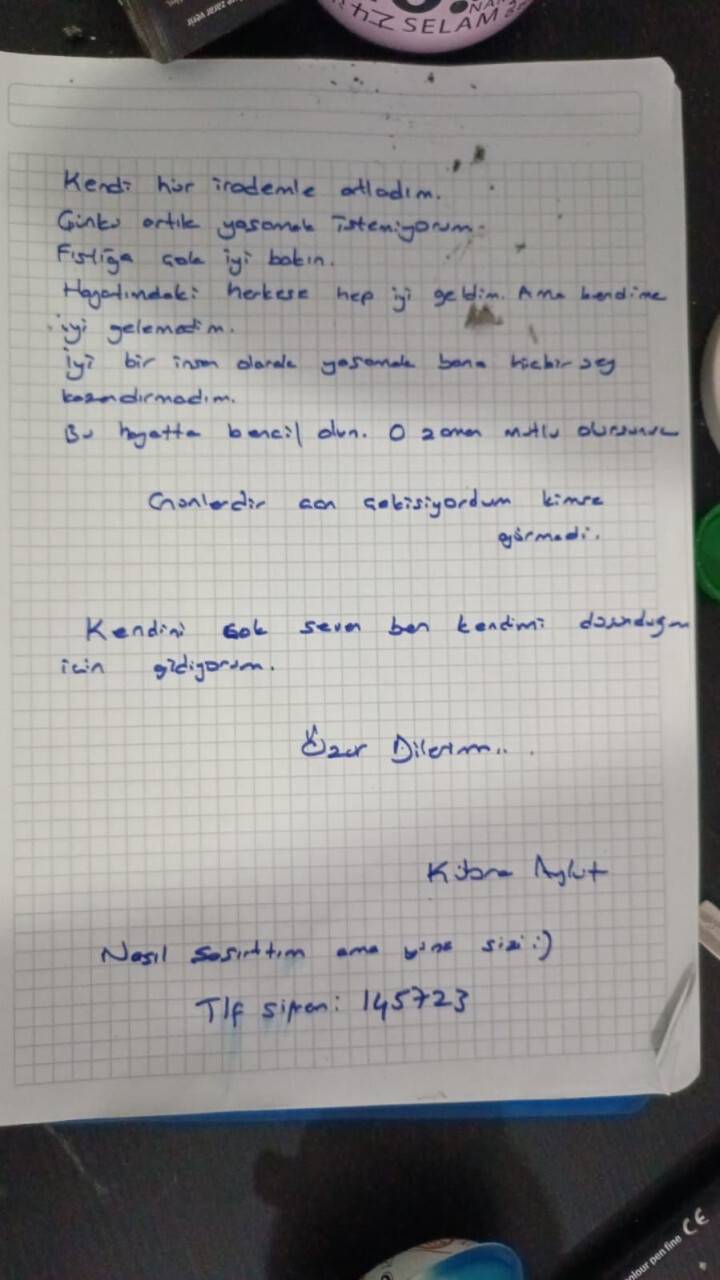 SELAM
Kendi hür irademle atladım.
Çünkü artık yaşamak istemiyorum.
Fıstığa çok iyi bakın.
Hayatımdaki herkese hep iyi geldim. Ama kendime
iyi gelemedim.
İyi bir insan olarak yaşamak bana hiçbir şey
kazandırmadım.
Bu hayatta bencil olun. O zaman mutlu olursunuz
Günlerdir can çekişiyordum kimse
görmedi.
Kendini çok seven ben kendimi düşündüğüm
için gidiyorum.
Özür Dilerim...
Nasıl şaşırttım ama yine sizi :)
Tlf şifrem: 145723
olour pen fine CE